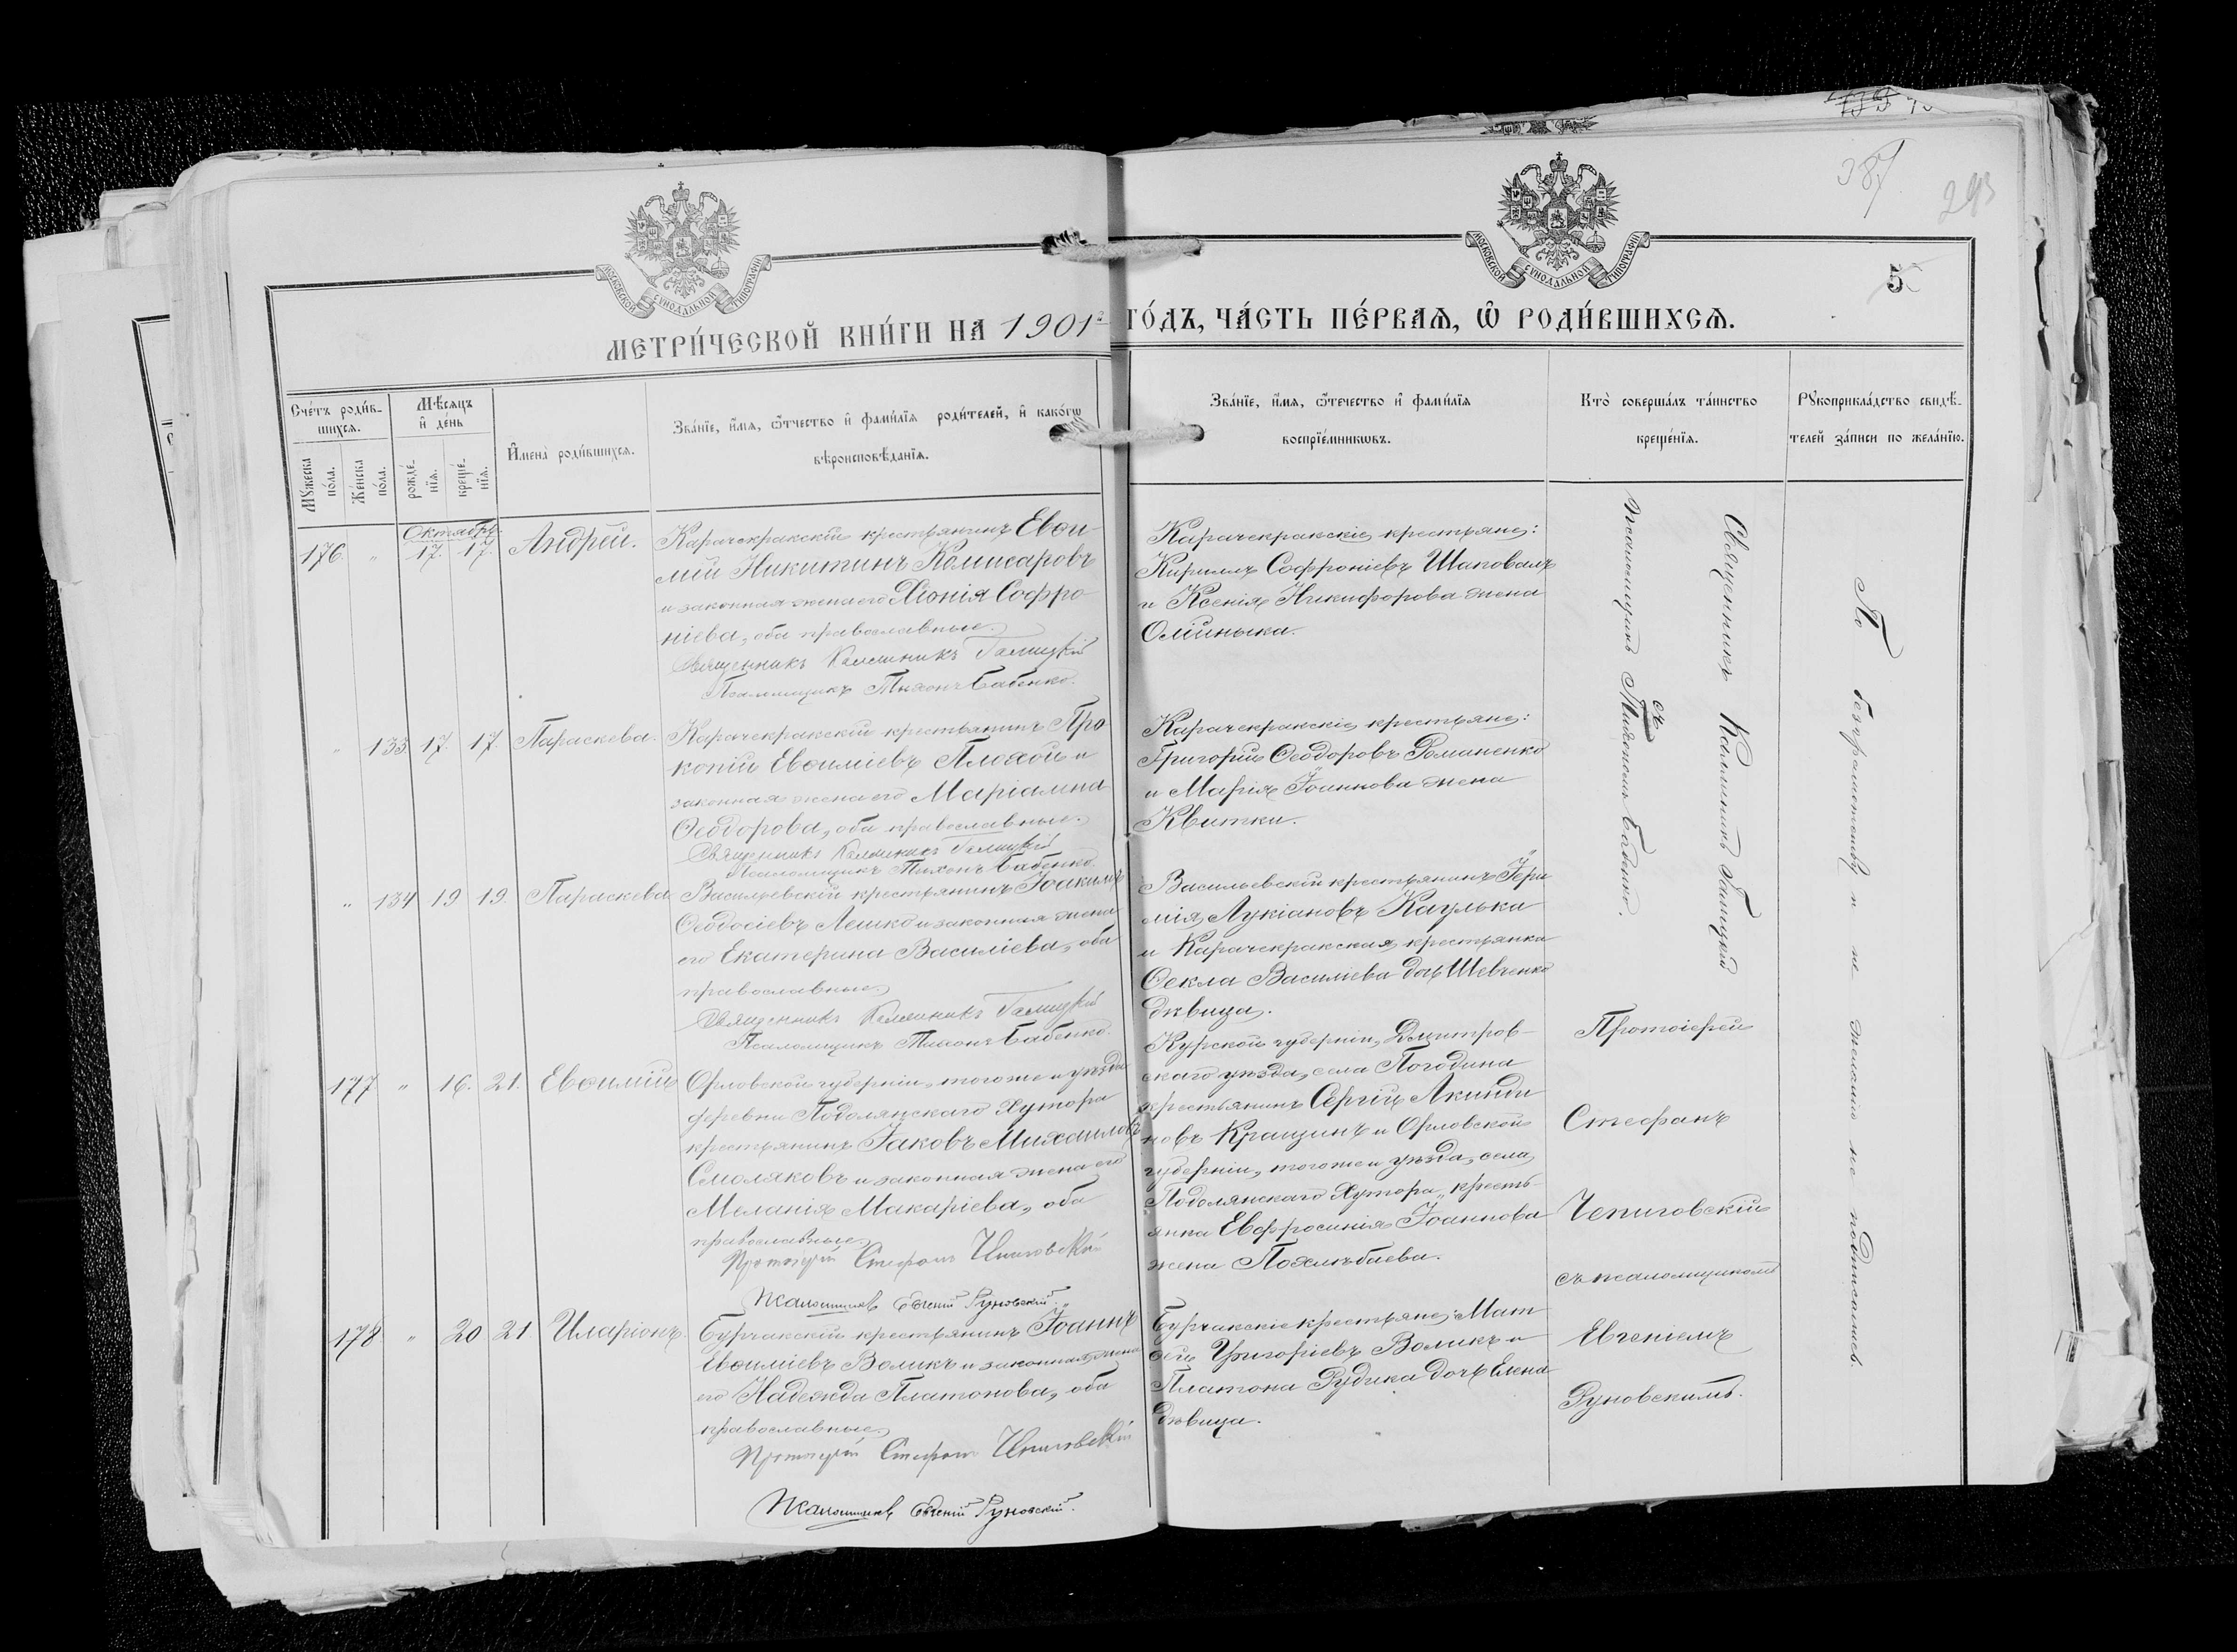 387
293
МОСКОВСКОЙ СѴНОДАЛЬНОЙ ТИПОГРАФІИ
МОСКОВСКОЙ СѴНОДАЛЬНОЙ ТИПОГРАФІИ
5
МЕТРИ́ЧЕСКОЙ КНИ́ГИ НА 1901 г. ГО́ДЪ, ЧА́СТЬ ПЕ́РВАѦ, Ѡ҆ РОДИ́ВШИХСѦ.
Сче́тъ роди́в-
шихсѧ.
Мꙋжеска по́ла.
Же́нска по́ла.
Мѣ́сѧцъ
и҆ де́нь
рожде́-
нїѧ.
креще́-
нїѧ.
И҆мена̀ роди́вшихсѧ.
Зва́нїе, и҆́мѧ, ѻ҆́тчество и҆ фами́лїѧ роди́телей, и҆ како́гѡ
вѣроисповѣ́данїѧ.
Зва́нїе, и҆́мѧ, ѻ҆́течество и҆ фами́лїѧ
воспрїе́мникѡвъ.
Кто̀ соверша́лъ та́инство
креще́нїѧ.
Рꙋкоприкла́дство свидѣ́-
телей за́писи по жела́нїю.
Октябрь
176 „ 17. 17. Андрей.
Карачекракскій крестьянинъ Евѳи-
мій Никитинъ Комисаровъ
и законная жена его Хіонія Софро
ніева, оба православные.
Священникъ Каллиникъ Галицкій
Псаломщикъ Тихонъ Бабенко.
Карачекракскіе крестьяне:
Кириллъ Софроніевъ Шаповалъ
и Ксенія Никифорова жена
Олійныка.
„ 133 17. 17. Параскева.
Карачекракскій крестьянинъ Про
копій Евѳиміевъ Плохой и
законная жена его Маріамна
Ѳеодорова, оба православные.
Священникъ Каллиникъ Галицкій
Псаломщикъ Тихонъ Бабенко.
Карачекракскіе крестьяне:
Григорій Ѳеодоровъ Романенко
и Марія Іоаннова жена
Квитки.
„ 134 19 19. Параскева
Васильевскій крестьянинъ Іоакимъ
Ѳеодосіевъ Лешко и законная жена
его Екатерина Василіева, оба
православные.
Священникъ Каллиникъ Галицкій
Псаломщикъ Тихонъ Бабенко.
Васильевскій крестьянинъ Іере
мія Лукіановъ Каулька
и Карачекракская крестьянка
Ѳекла Василіева дочь Шевченко
дѣвица.
Священникъ Каллиникъ Галицкій
съ
псаломщикомъ Тихономъ Бабенко.
177 „ 16. 21. Евѳимій
Орловской губерніи, того же и уѣзда
деревни Подолянскаго Хутора
крестьянинъ Іаковъ Михаиловъ
Смоляковъ и законная жена его
Меланія Макаріева, оба
православные.
Протоіерей Стефанъ Чепиговскій
Псаломщикъ Евгеній Руновскій.
Курской губерніи, Дмитров-
скаго уѣзда, села Погодина
крестьянинъ Сергій Акинди
новъ Кращинъ и Орловской
губерніи, того же и уѣзда, села
Подолянскаго Хутора, кресть-
янка Евфросинія Іоаннова
жена Похлѣбаева.
Протоіерей
Стефанъ
Чепиговскій
съ псаломщикомъ
Евгеніемъ
Руновскимъ.
178 „ 20 21 Иларіонъ.
Бурчакскій крестьянинъ Іоаннъ
Евѳиміевъ Воликъ и законная жена
его Надежда Платонова, оба
православные.
Протоіерей Стефанъ Чепиговскій
Псаломщикъ Евгеній Руновскій.
Бурчакскіе крестьяне: Мат
ѳей Григоріевъ Воликъ и
Платона Рудика дочь Елена
дѣвица.
По безграмотству и не желанію не подписались.